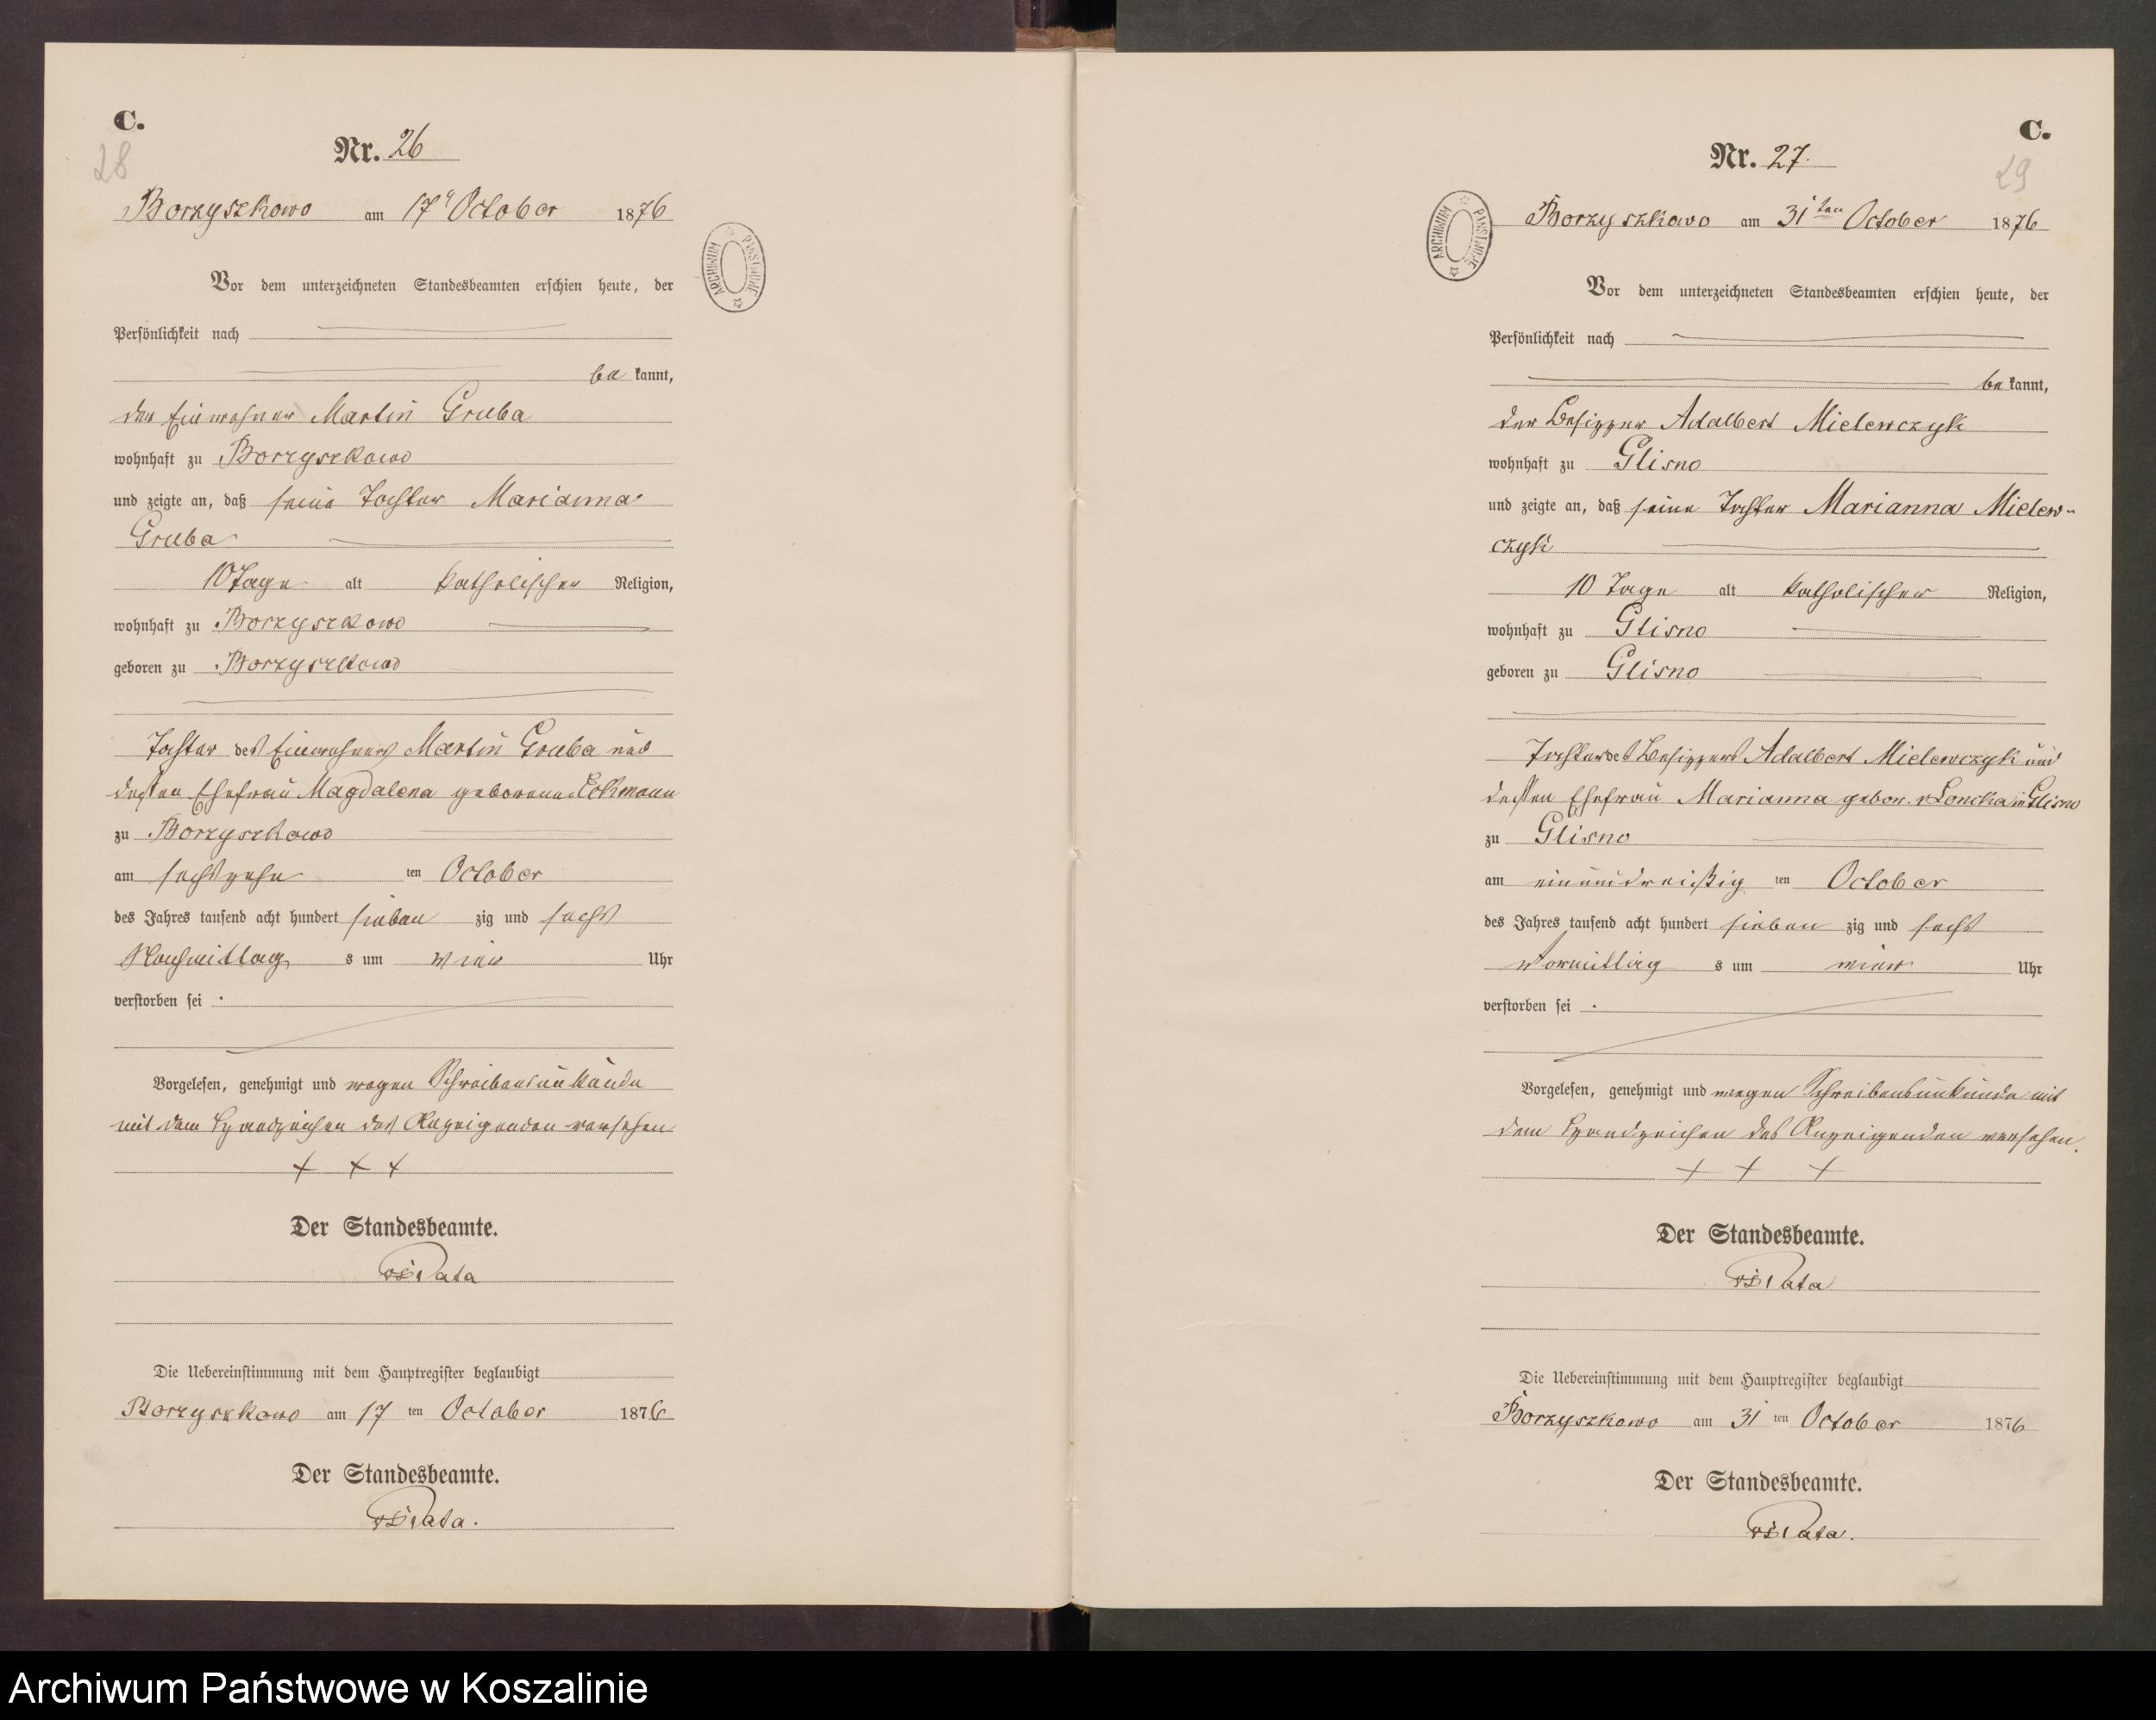 C.
28
Nr. 26
Borzyszkowo am 17t October 1876
ARCHIWUM PAŃSTWOWE
Vor dem unterzeichneten Standesbeamten erschien heute, der
Persönlichkeit nach
be kannt,
der Einwohner Martin Gruba
wohnhaft zu Borzyszkowo
und zeigte an, daß seine Tochter Marianna
Gruba
10 Tage alt katholischer Religion,
wohnhaft zu Borzyszkowo
geboren zu Borzyszkowo
Tochter des Einwohners Martin Gruba und
dessen Ehefrau Magdalena geborene Eckmann
zu Borzyszkowo
am sechszehn ten October
des Jahres tausend acht hundert sieben zig und sechs
Nachmittag s um vier Uhr
verstorben sei .
Vorgelesen, genehmigt und wegen Schreibensunkunde
mit dem Handzeichen des Anzeigenden versehen
+ + +
Der Standesbeamte.
Pata
Die Uebereinstimmung mit dem Hauptregister beglaubigt
Borzyszkowo am 17 ten October 1876
Der Standesbeamte.
Pata.
C.
29
Nr. 27.
Borzyszkowo am 31ten October 1876
ARCHIWUM PAŃSTWOWE
Vor dem unterzeichneten Standesbeamten erschien heute, der
Persönlichkeit nach
be kannt,
der Besizzer Adalbert Mielewczyk
wohnhaft zu Glisno
und zeigte an, daß seine Tochter Marianna Mielew-
czyk
10 Tage alt katholischer Religion,
wohnhaft zu Glisno
geboren zu Glisno
Tochter des Besizzers Adalbert Mielewczyk und
dessen Ehefrau Marianna gebor. v Loncka in Glisno
zu Glisno
am einunddreißig ten October
des Jahres tausend acht hundert sieben zig und sechs
Vormittag s um vier Uhr
verstorben sei .
Vorgelesen, genehmigt und wegen Schreibensunkunde mit
dem Handzeichen des Anzeigenden versehen.
+ + +
Der Standesbeamte.
Pata
Die Uebereinstimmung mit dem Hauptregister beglaubigt
Borzyszkowo am 31 ten October 1876
Der Standesbeamte.
Pata.
Archiwum Państwowe w Koszalinie